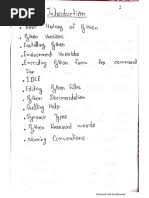 Introduction
1
• Brief History of Python
• Python Versions
• Installing Python
• Environment Variables
• Executing Python from the command
line
• IDLE
• Editing Python Files
• Python Documentation
• Getting Help
• Dynamic Types
• Python Reserved words
• Naming Conventions